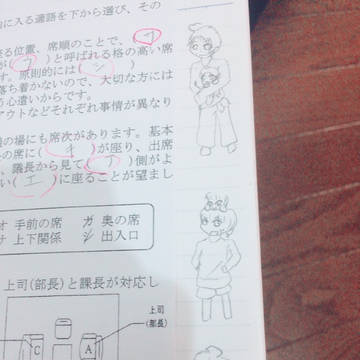 に入る適語を下から選び、その
る位置、席順のことで、ウ
)と呼ばれる格の高い席
す。原則的には(シ)
落ち着かないので、大切な方には
う心遣いからです。
アウトなどそれぞれ事情が異なり
の場にも席次があります。基本
の席に(キ)が座り、出席
、議長から見て( )側がよ
い(エ)に座ることが望まし
オ 手前の席 ガ 奥の席
サ 上下関係 シ 出入口
上司(部長)と課長が対応し
C
A
上司
(部長)